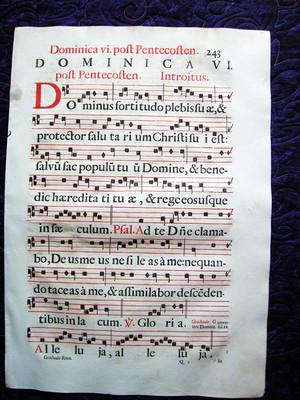 Dominica vi. post Pentecosten. 243
DOMINICA VI.
post Pentecosten. Introitus.
DOminus fortitudo plebis su æ, &
protector salu ta ri um Christi su i est:
salvũ fac populũ tu ũ Domine, & bene-
dic hæredita ti tu æ, & rege eos usque
in sæ culum. Psal. Ad te Dñe clama-
bo, De us me us ne si le as à me: nequan-
do taceas à me, & assimilabor descẽden-
tibus in la cum. ℣. Glo ri a.
Alle lu ja, al le lu ja.
Graduale Rom.